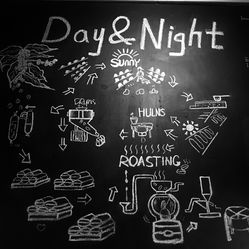 Day & Night
Sunny
HULNS
ROASTING